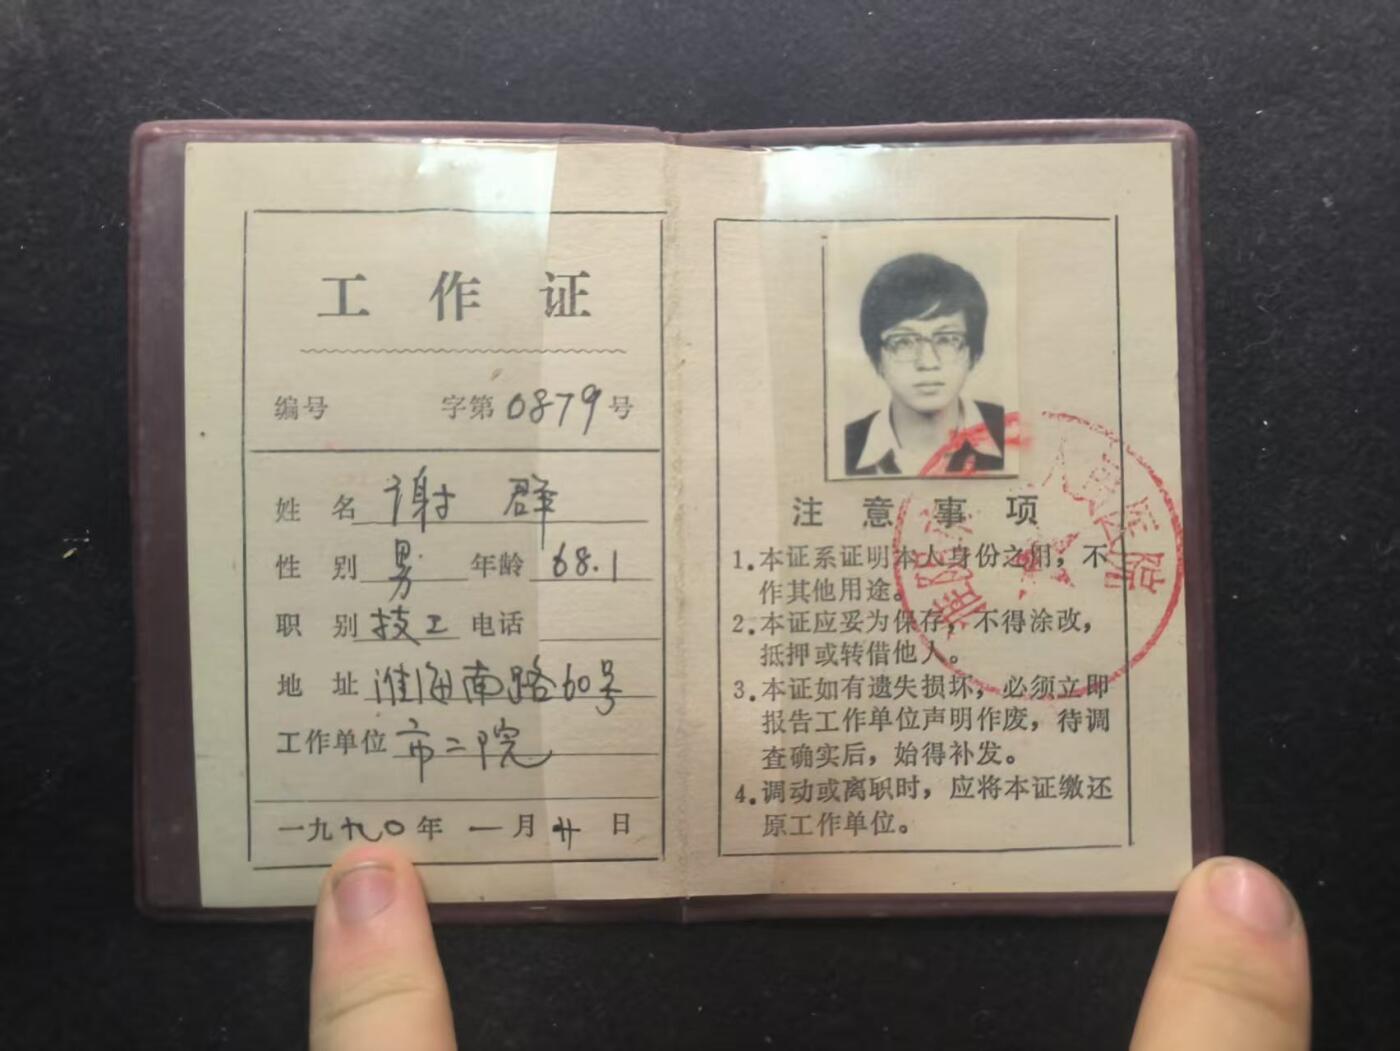 工作证
编号 字第0879号
姓名 谢群
性别 男 年龄 68.1
职别 技工 电话
地址 淮海南路60号
工作单位 市二院
一九九〇年 一月廿日
注意事项
1.本证系证明本人身份之用，不
作其他用途。
2.本证应妥为保存，不得涂改，
抵押或转借他人。
3.本证如有遗失损坏，必须立即
报告工作单位声明作废，待调
查确实后，始得补发。
4.调动或离职时，应将本证缴还
原工作单位。